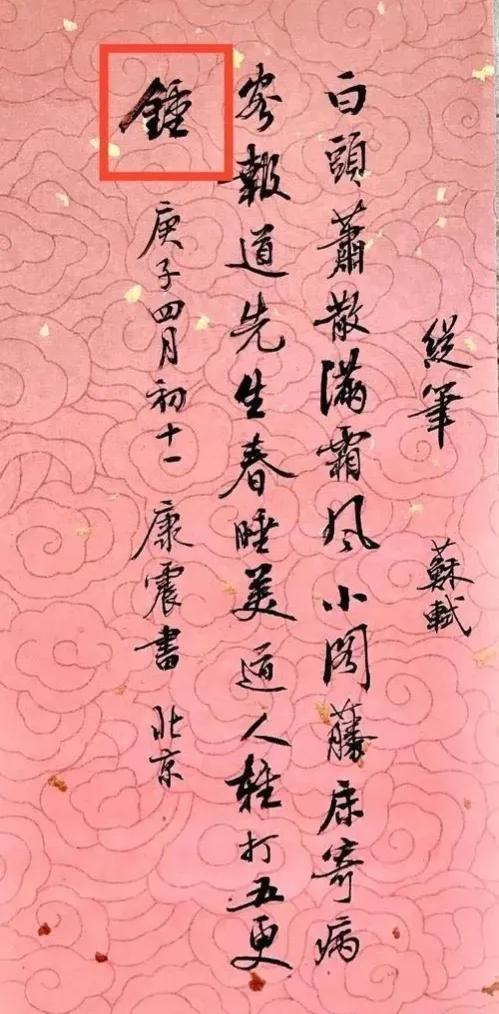 縱筆 蘇軾
白頭蕭散滿霜風小閣藤床寄病
容報道先生春睡美道人輕打五更
鍾 庚子四月初十一 康震書 北京